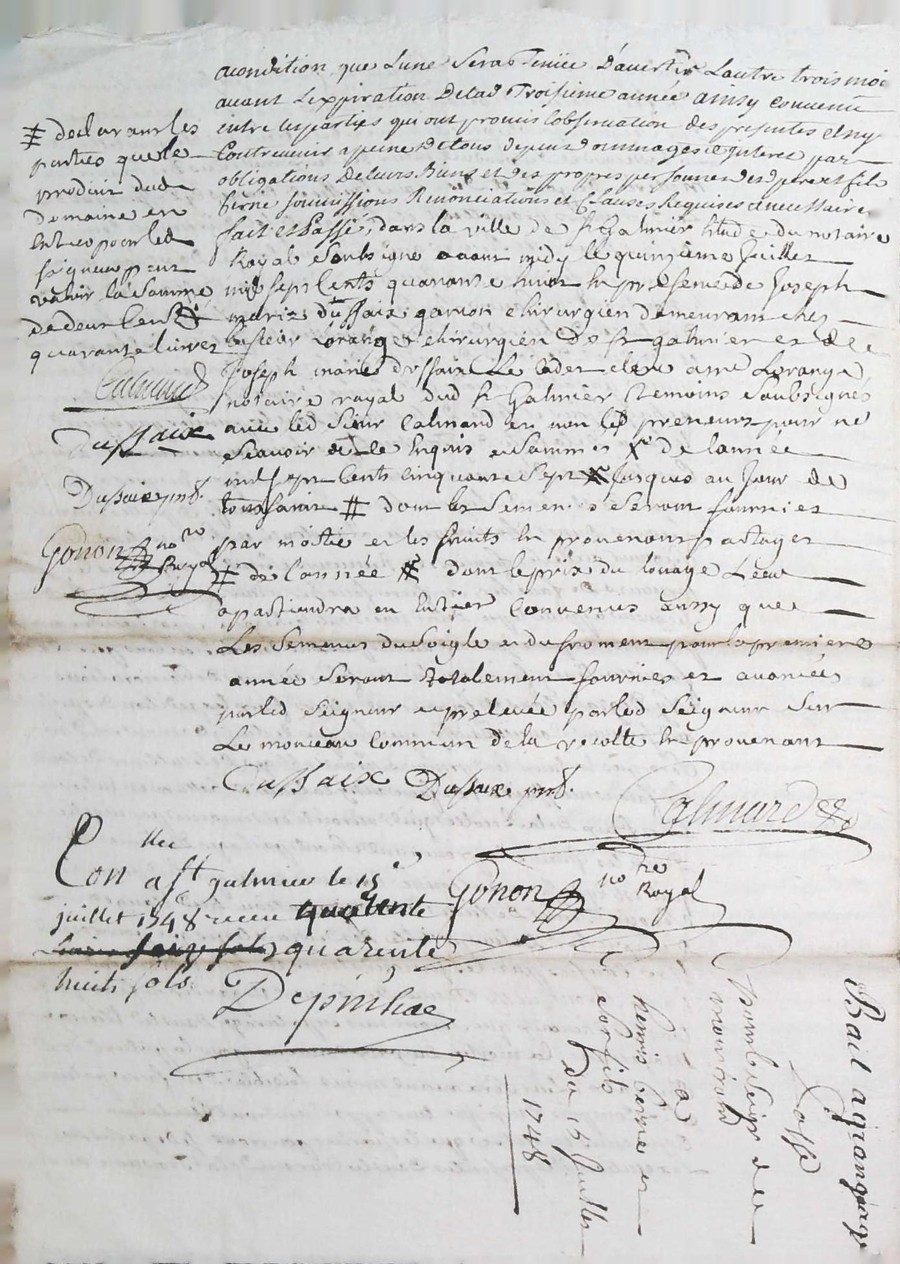 acondition que Lune Sera Tenüe D'avertir Lautre trois moi
avant L'expiration Delad Troisieme année ainsy convenu
entre lesparties qui ont promis l'observation des presentes et ny
Contrevenir a peine de tous depens dommages et Interet par
obligations Deleurs Biens et des propres personnes desd pere et fils
soumissions Renonciations et Clauses Requises et necessaire
fait et Passé dans la ville de St Galmier Etude du notaire
Royal Soubsigné avant midy le quinzieme Juillet
mil sept Cents quarante huit En presence de Joseph
marie Dussaix garçon chirurgien demeurant chez
sieur Lorange chirurgien de St galmier et de
Joseph marie Dussaix Le Cadet clerc a me Lorange
notaire royal dud St Galmier Temoins Soubsignés
avec led Sieur Calmard et non les preneurs pour ne
Scavoir de le Enquis et Sommés de lannée
mil sept Cents cinquante sept Jusques au Jour de
toussaint # dont les Semences Seront fournies
par moitié et les fruits En provenant partages
# de lannée dont le prix du louage
apartiendra en Entier Convenus aussy que
Les Semences du Seigle et du froment pour la premiere
année Seront totalement fournies et avancées
parled Seigneur et prelevée parled Seigneur Sur
Le monceau Commun de la recolte En provenant
Dussaix Dussaix pnt. Calmard
# declarant les
parties que le
produit dud
Domaine en
Entier pour led
seigneur peut
valoir la Somme
de deux Cents
quarante livres
Calmard
Dussaix
Dussaix pnt.
Gonon no re
Royal
Con llé a St galmier le 15e
juillet 1748 receu
quarente
huit sols
Depinhac
Gonon no re
Royal
Bail a grangeage
Passé
par le Seigr de
a
Benoit et
Son fils
du 15 Juillet
1748